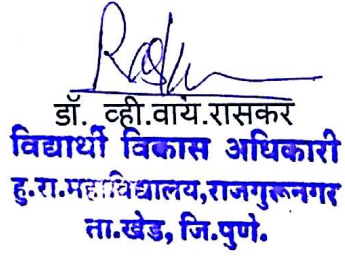 डॉ. व्ही.वाय.रासकर
विद्यार्थी विकास अधिकारी
हु.रा.महाविद्यालय,राजगुरूनगर
ता.खेड, जि.पुणे.